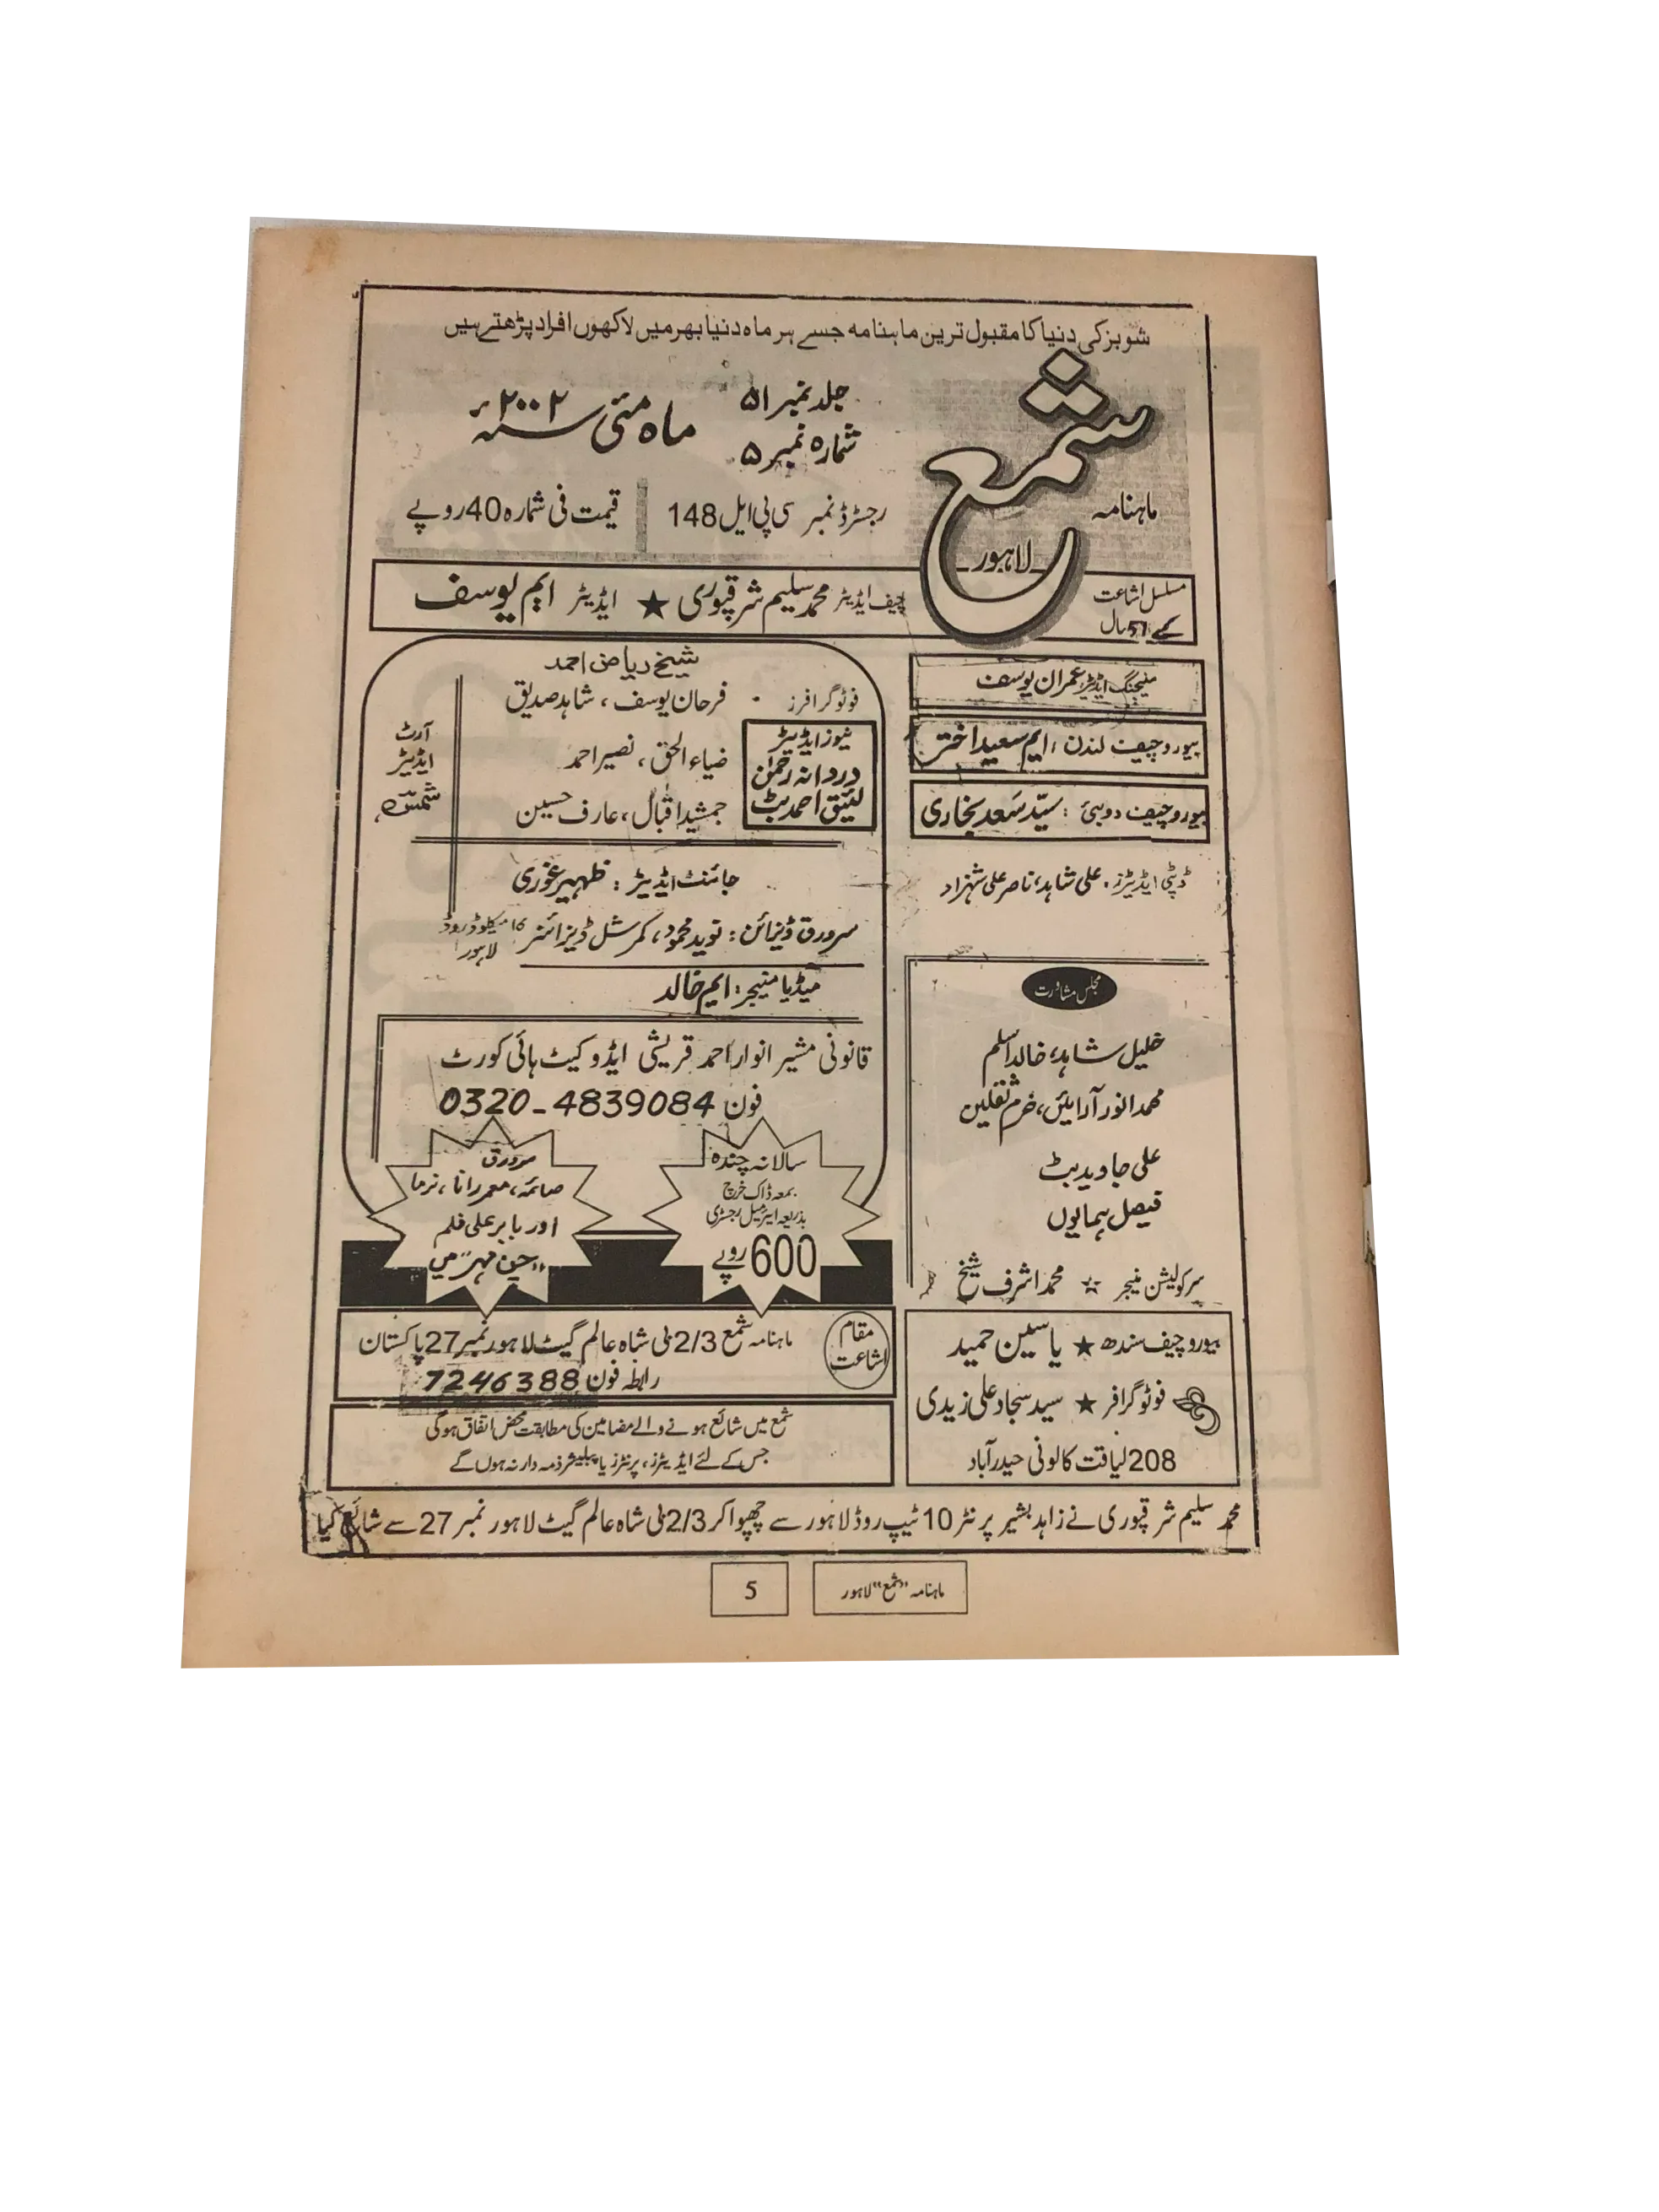 شوبز کی دنیا کا مقبول ترین ماہنامہ جسے ہر ماہ دنیا بھر میں لاکھوں افراد پڑھتے ہیں
ماہنامہ شمع لاہور
جلد نمبر ۵۱
شمارہ نمبر ۵
ماہ مئی سنہ ۲۰۰۲ء
رجسٹرڈ نمبر سی پی ایل 148
قیمت فی شمارہ 40 روپے
مسلسل اشاعت
کے 51 سال
چیف ایڈیٹر محمد سلیم شرقپوری ★ ایڈیٹر ایم یوسف
منیجنگ ایڈیٹر عمران یوسف
بیورو چیف لندن : ایم سعید اختر
بیورو چیف دوبئی : سیّد سَعد بخاری
ڈپٹی ایڈیٹرز . علی شاہد، ناصر علی شہزاد
مجلس مشاورت
خلیل شاہد، خالد اسلم
محمد انور آرائیں، خرم ثقلین
علی جاوید بٹ
فیصل ہمایوں
سرکولیشن منیجر ☆ محمد اشرف شیخ
بیورو چیف سندھ ★ یاسین حمید
فوٹو گرافر ★ سید سجاد علی زیدی
208 لیاقت کالونی حیدرآباد
شیخ ریاض احمد
فوٹو گرافرز - فرحان یوسف ، شاہد صدیق
ضیاء الحق ، نصیر احمد
جمشید اقبال، عارف حسین
نیوز ایڈیٹر
دردانہ رحمٰن
لئیق احمد بٹ
آرٹ
ایڈیٹر
شمسؔ
جائنٹ ایڈیٹر : ظہیر غوری
سرورق ڈیزائن : نوید محمود، کمرشل ڈیزائنر میکلوڈ روڈ لاہور
میڈیا منیجر : ایم خالد
قانونی مشیر انوار احمد قریشی ایڈوکیٹ ہائی کورٹ
فون 0320-4839084
سالانہ چندہ
بمعہ ڈاک خرچ
بذریعہ ایئرمیل رجسٹری
600 روپے
سرورق
صائمہ، معمر رانا ، نرما
اور بابر علی فلم
مقام
اشاعت
ماہنامہ شمع 2/3 ٹی شاہ عالم گیٹ لاہور نمبر 27 پاکستان
رابطہ فون 7246388
شمع میں شائع ہونے والے مضامین کی مطابقت محض اتفاق ہوگی
جس کے لئے ایڈیٹرز، پرنٹرز یا پبلیشر ذمہ دار نہ ہوں گے
محمد سلیم شرقپوری نے زاہد بشیر پرنٹر 10 ٹیپ روڈ لاہور سے چھپوا کر 2/3 ٹی شاہ عالم گیٹ لاہور نمبر 27 سے شائع کیا
ماہنامہ "شمع" لاہور
5